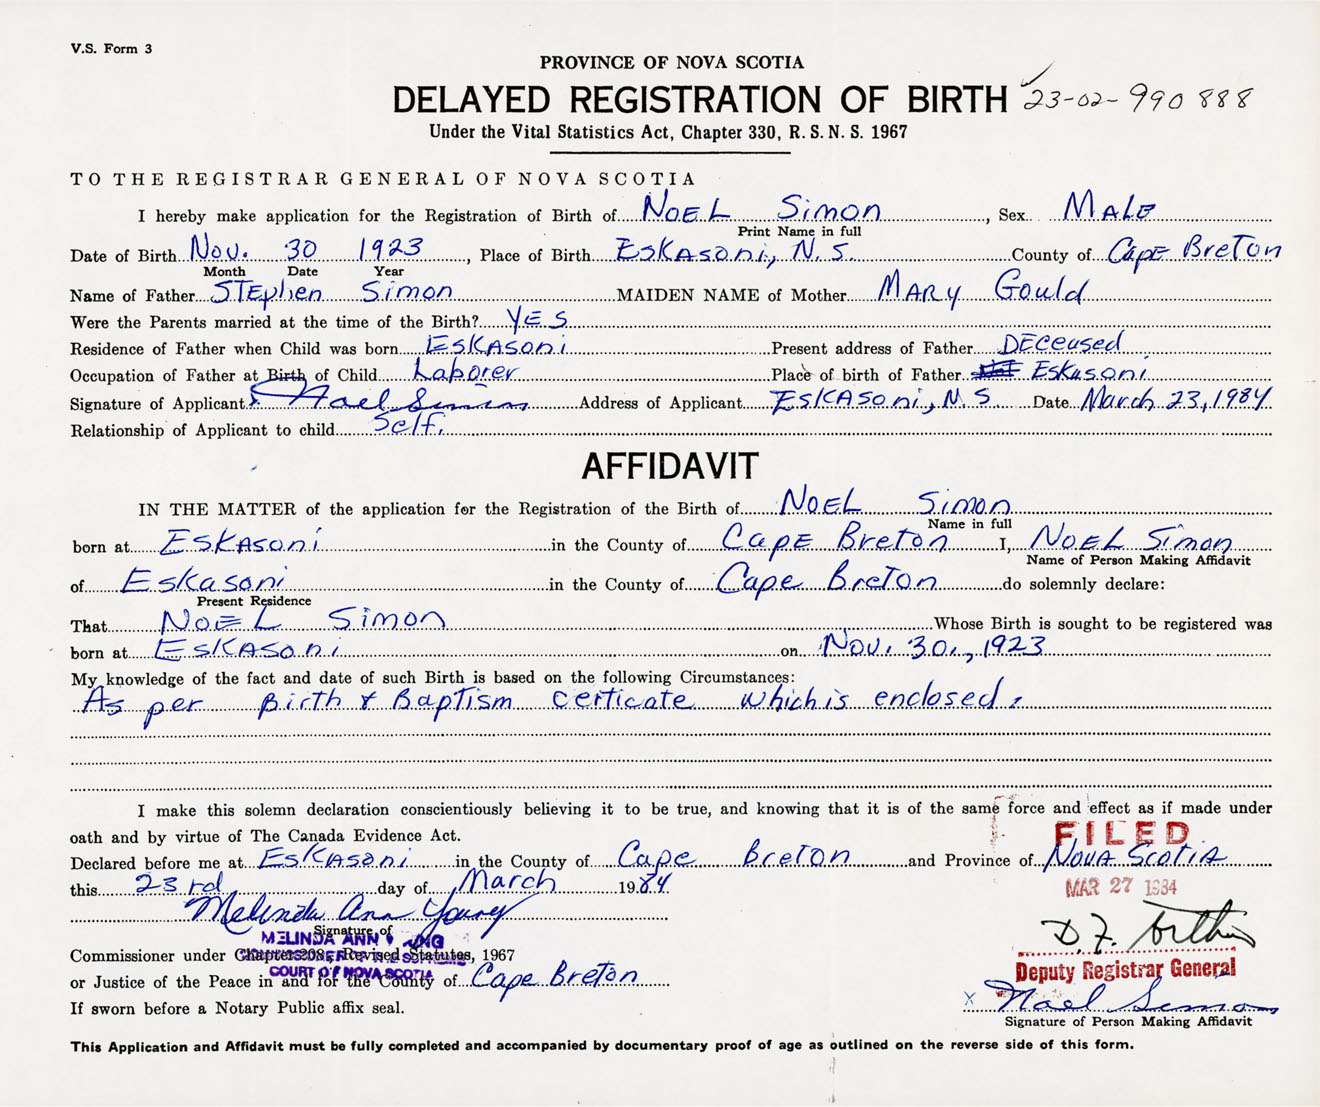 V.S. Form 3
PROVINCE OF NOVA SCOTIA
DELAYED REGISTRATION OF BIRTH 23-02-990888
Under the Vital Statistics Act, Chapter 330, R.S.N.S. 1967
TO THE REGISTRAR GENERAL OF NOVA SCOTIA
I hereby make application for the Registration of Birth of NOEL Simon, Sex MALE
Print Name in full
Date of Birth Nov. 30 1923, Place of Birth ESKASONi, N.S. County of Cape Breton
Month Date Year
Name of Father STEphen Simon MAIDEN NAME of Mother MARY Gould
Were the Parents married at the time of the Birth? YES
Residence of Father when Child was born ESKASONi Present address of Father DECeased
Occupation of Father at Birth of Child Laborer Place of birth of Father Eskasoni
Signature of Applicant X Noel Simon Address of Applicant ESKASoni, N.S. Date March 23, 1984
Relationship of Applicant to child Self.
AFFIDAVIT
IN THE MATTER of the application for the Registration of the Birth of NOEL Simon
Name in full
born at ESKASONi in the County of CAPE Breton I, NOEL Simon
Name of Person Making Affidavit
of Eskasoni in the County of Cape Breton do solemnly declare:
Present Residence
That NOEL Simon Whose Birth is sought to be registered was
born at ESKASONi on Nov. 30., 1923
My knowledge of the fact and date of such Birth is based on the following Circumstances:
As per Birth & Baptism certicate which is enclosed.
I make this solemn declaration conscientiously believing it to be true, and knowing that it is of the same force and effect as if made under
oath and by virtue of The Canada Evidence Act.
FILED
Declared before me at ESKASONi in the County of Cape Breton and Province of NOVA SCOTIA
this 23rd day of March 1984
MAR 27 1984
Melinda Ann Young
Signature of
MELINDA ANN YOUNG
Commissioner under Chapter 208, Revised Statutes, 1967
COURT OF NOVA SCOTIA
or Justice of the Peace in and for the County of Cape Breton
D.F.
Deputy Registrar General
If sworn before a Notary Public affix seal.
X Noel Simon
Signature of Person Making Affidavit
This Application and Affidavit must be fully completed and accompanied by documentary proof of age as outlined on the reverse side of this form.